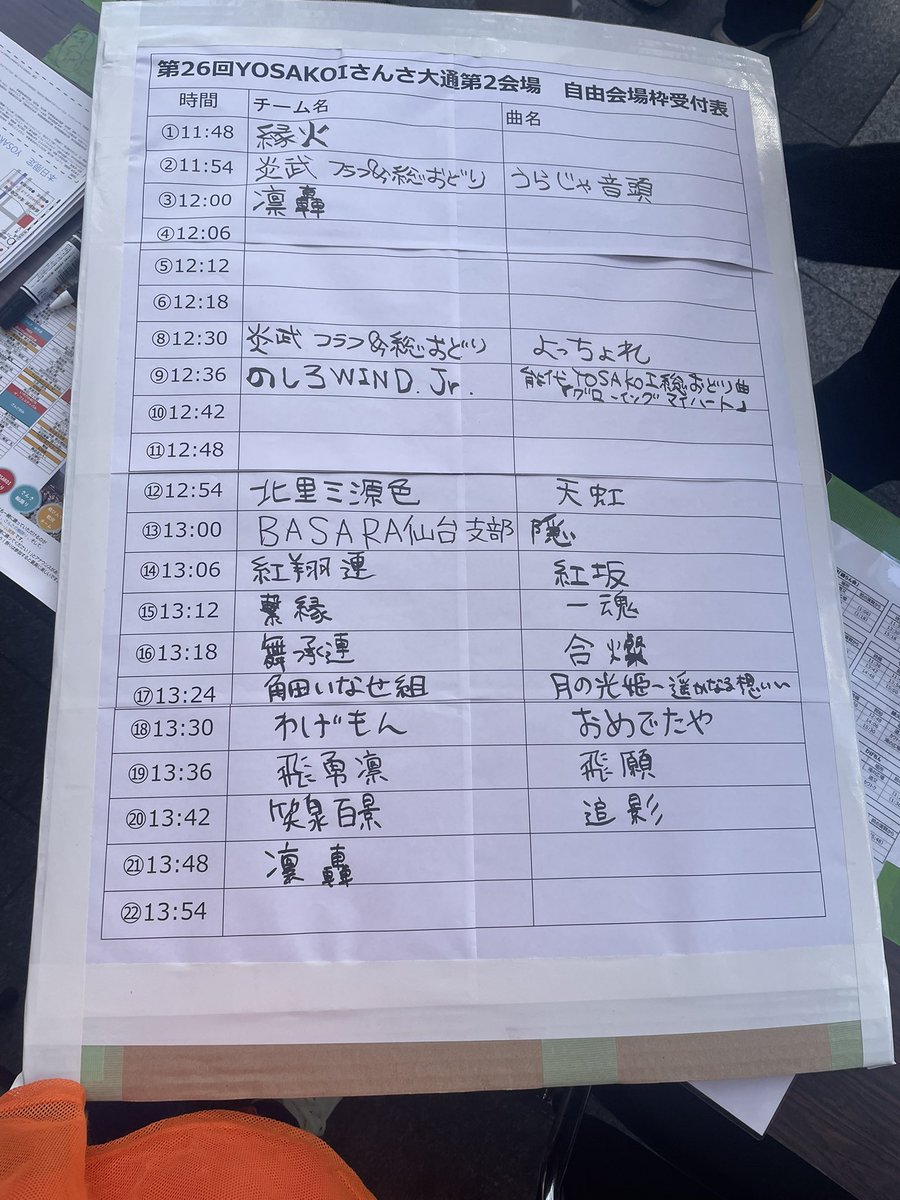 第26回YOSAKOIさんさ大通第2会場 自由会場枠受付表
時間 チーム名 曲名
①11:48 縁火
②11:54 炎武 フラフ&総おどり うらじゃ音頭
③12:00 凛轟
④12:06
⑤12:12
⑥12:18
⑧12:30 炎武 フラフ&総おどり よっちょれ
⑨12:36 のしろWIND.Jr. 能代YOSAKOI総おどり曲
『グローイングマイハート』
⑩12:42
⑪12:48
⑫12:54 北里三源色 天虹
⑬13:00 BASARA仙台支部 隠
⑭13:06 紅翔連 紅坂
⑮13:12 繋縁 一魂
⑯13:18 舞承連 合燦
⑰13:24 角田いなせ組 月の光姫~遥かなる想い~
⑱13:30 わげもん おめでたや
⑲13:36 飛勇凛 飛願
⑳13:42 笑泉百景 追影
㉑13:48 凛轟
㉒13:54